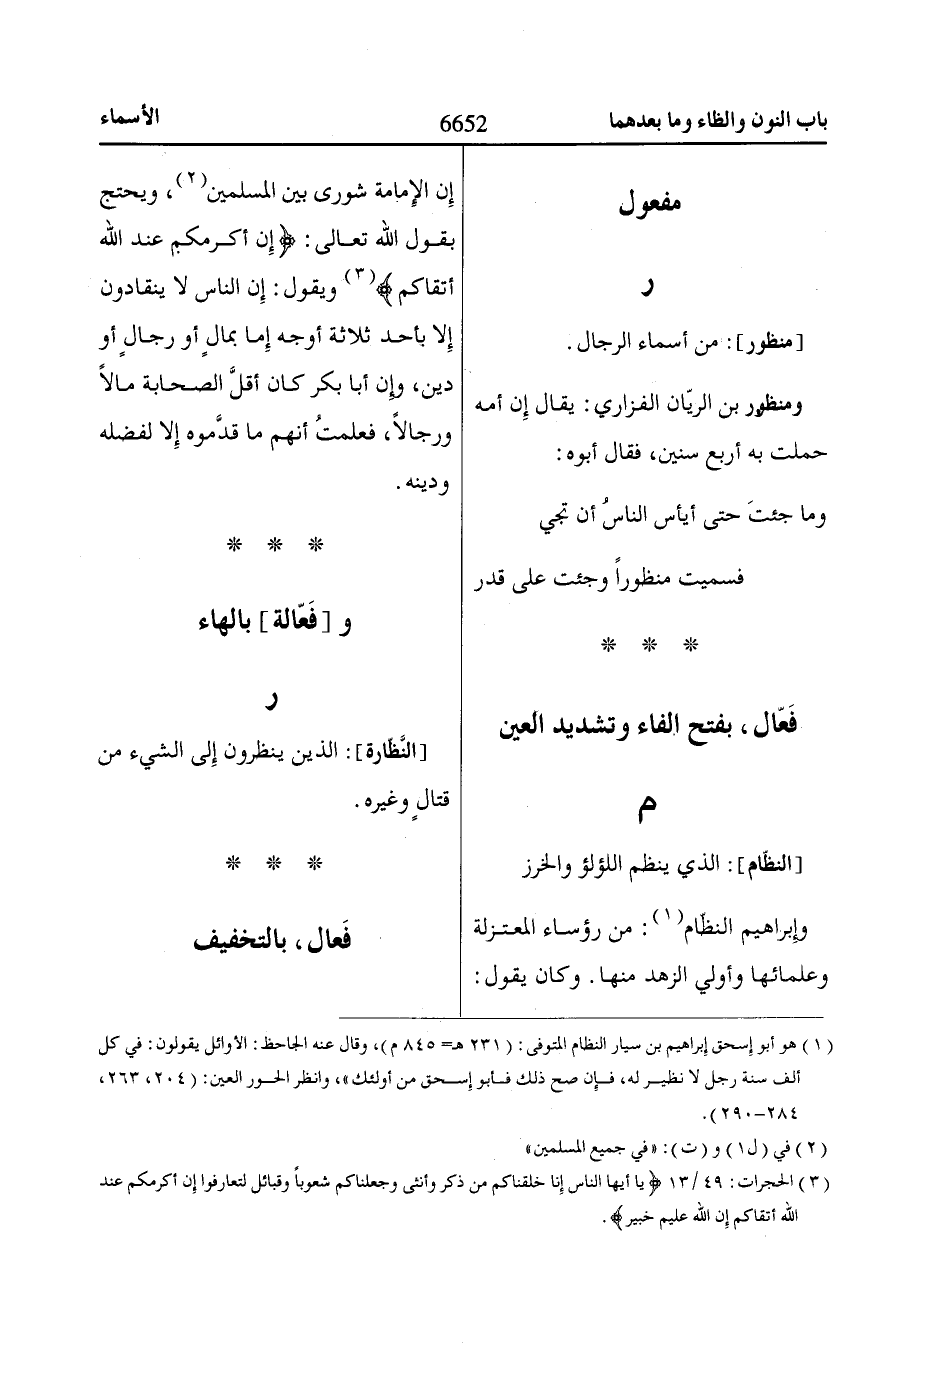 باب النون والظاء وما بعدهما
6652
الأسماء
مفعول
ر
[منظور]: من أسماء الرجال.
ومنظور بن الريّان الفزاري: يقال إن أمه
حملت به أربع سنين، فقال أبوه:
وما جئتَ حتى أيأس الناسُ أن تجي
فسميت منظوراً وجئت على قدر
* * *
فَعّال، بفتح الفاء وتشديد العين
م
[النظّام]: الذي ينظم اللؤلؤ والخرز
وإبراهيم النظّام(١): من رؤساء المعتزلة
وعلمائها وأولي الزهد منها. وكان يقول:
إن الإمامة شورى بين المسلمين(٢)، ويحتج
بقول الله تعالى: ﴿إن أكرمكم عند الله
أتقاكم﴾(٣) ويقول: إن الناس لا ينقادون
إلا بأحد ثلاثة أوجه إما بمالٍ أو رجالٍ أو
دين، وإن أبا بكر كان أقلَّ الصحابة مالاً
ورجالاً، فعلمتُ أنهم ما قدَّموه إلا لفضله
ودينه.
* * *
و [فَعّالة] بالهاء
ر
[النَّظّارة]: الذين ينظرون إلى الشيء من
قتالٍ وغيره.
* * *
فَعال، بالتخفيف
(١) هو أبو إسحق إبراهيم بن سيار النظام المتوفى: (٢٣١ هـ= ٨٤٥ م)، وقال عنه الجاحظ: الأوائل يقولون: في كل
ألف سنة رجل لا نظير له، فإن صح ذلك فأبو إسحق من أولئك»، وانظر الحور العين: (٢٠٤، ٢٦٣،
٢٨٤-٢٩٠).
(٢) في (ل١) و (ت): «في جميع المسلمين»
(٣) الحجرات: ٤٩/ ١٣ ﴿يا أيها الناس إنا خلقناكم من ذكر وأنثى وجعلناكم شعوباً وقبائل لتعارفوا إن أكرمكم عند
الله أتقاكم إن الله عليم خبير﴾.